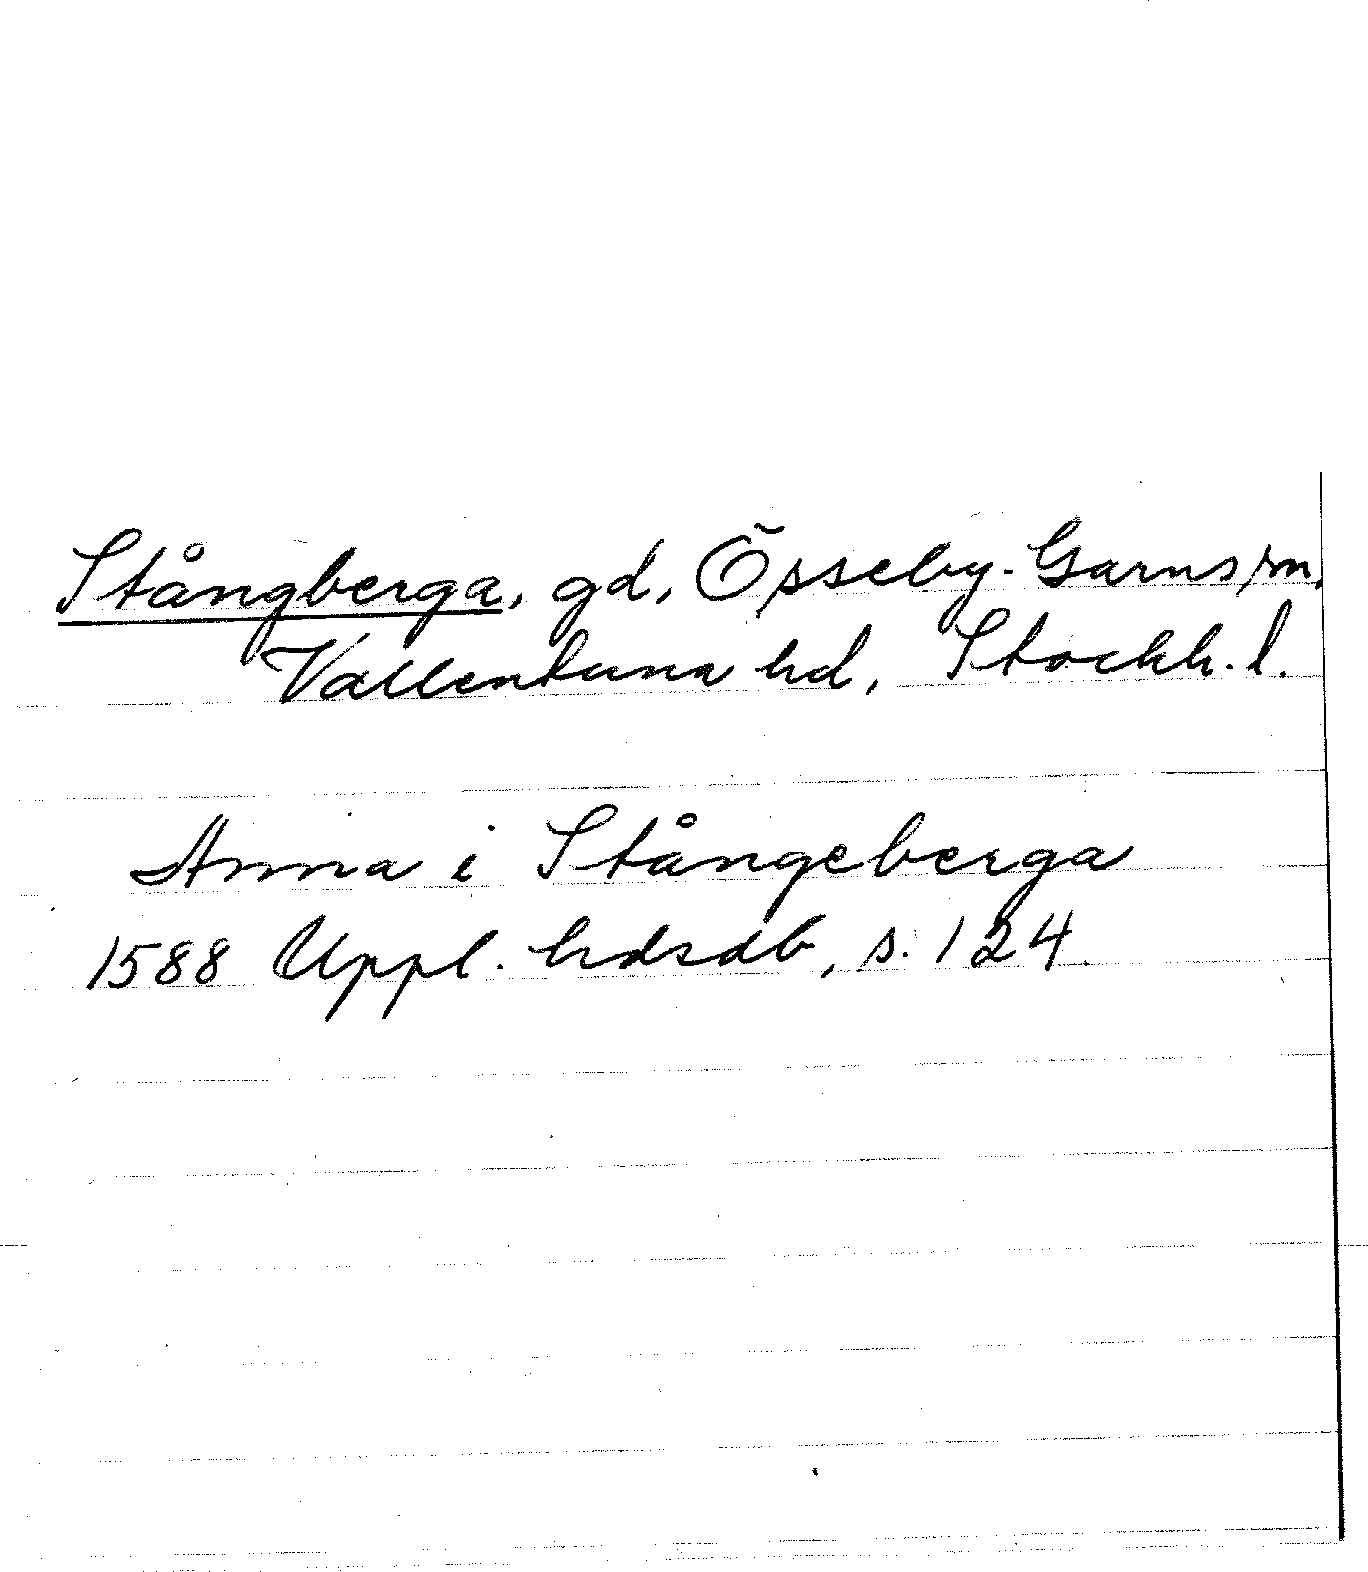 Stångberga, gd, Össeby-Garns sn,
Vallentuna hd, Stockh. l.
Anna i Stångeberga
1588 Uppl. hdsdb, s. 124.